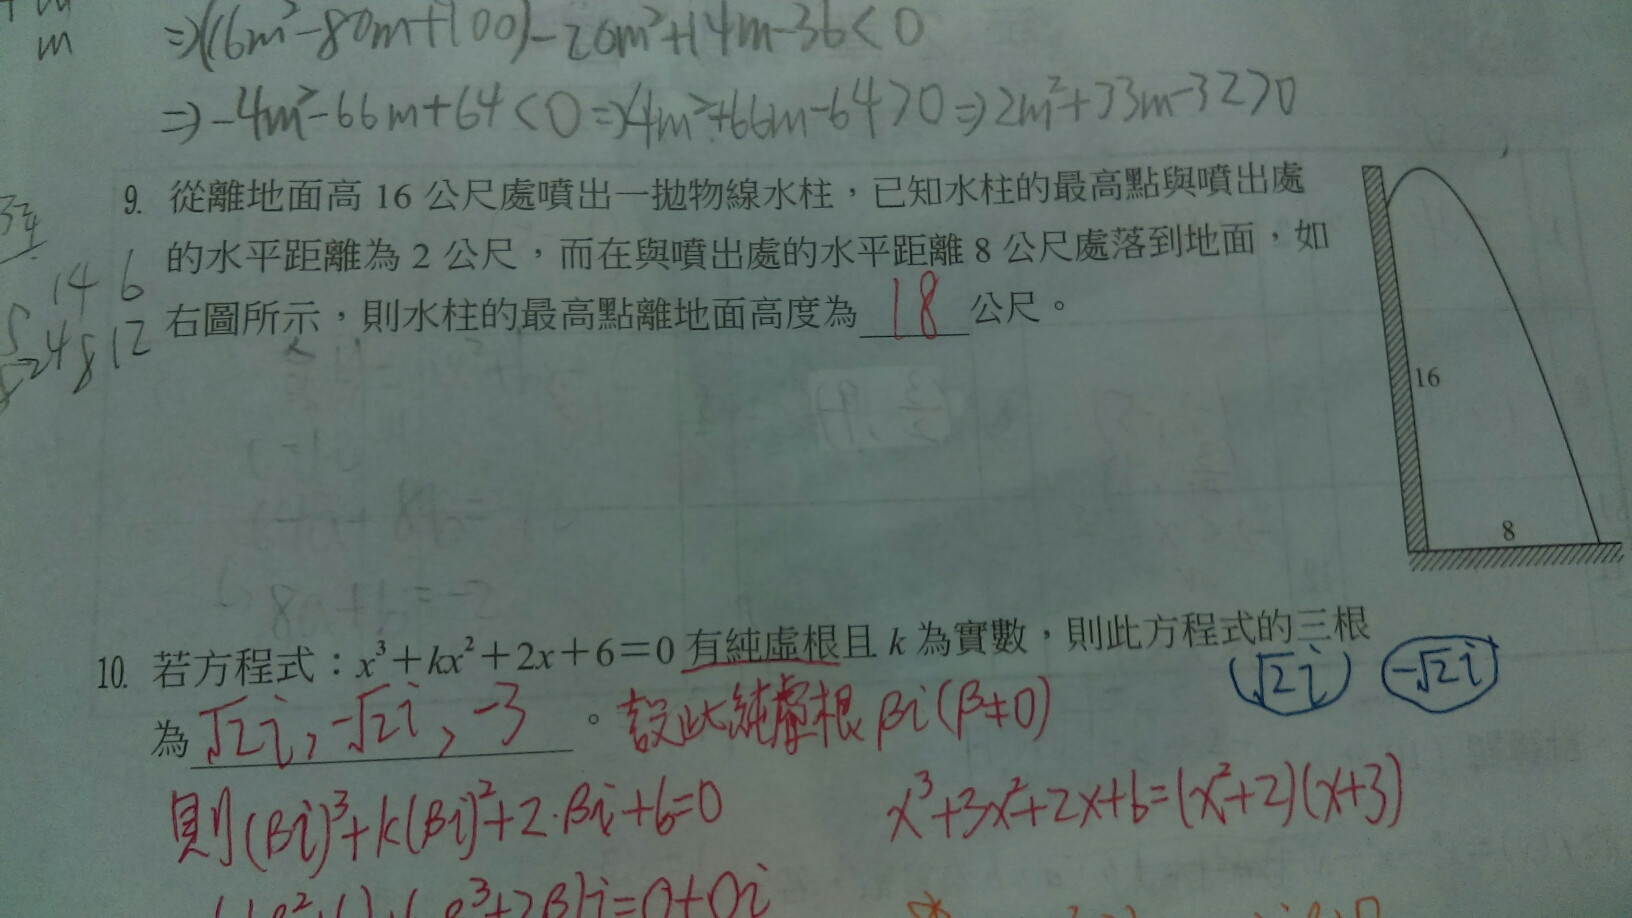 m
⇒(16m²-80m+100)-20m²+14m-36<0
⇒-4m²-66m+64<0⇒4m²+66m-64>0⇒2m²+33m-32>0
9. 從離地面高 16 公尺處噴出一拋物線水柱，已知水柱的最高點與噴出處
的水平距離為 2 公尺，而在與噴出處的水平距離 8 公尺處落到地面，如
右圖所示，則水柱的最高點離地面高度為 18 公尺。
14 6
24 8 12
16
8
10. 若方程式：x³+kx²+2x+6=0 有純虛根且 k 為實數，則此方程式的三根
(√2i) -√2i
為 √2i, -√2i, -3 。設此純虛根 βi(β≠0)
則(βi)³+k(βi)²+2·βi+6=0
x³+3x²+2x+6=(x²+2)(x+3)
=0+0i